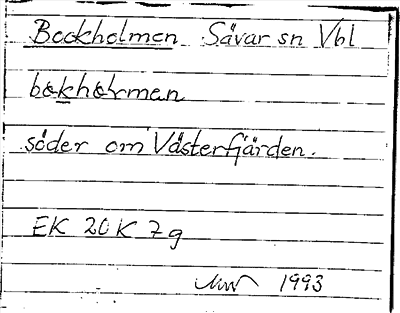 Bockholmen Sävar sn Vbl
söder om Västerfjärden.
EK 20K 7g
1993